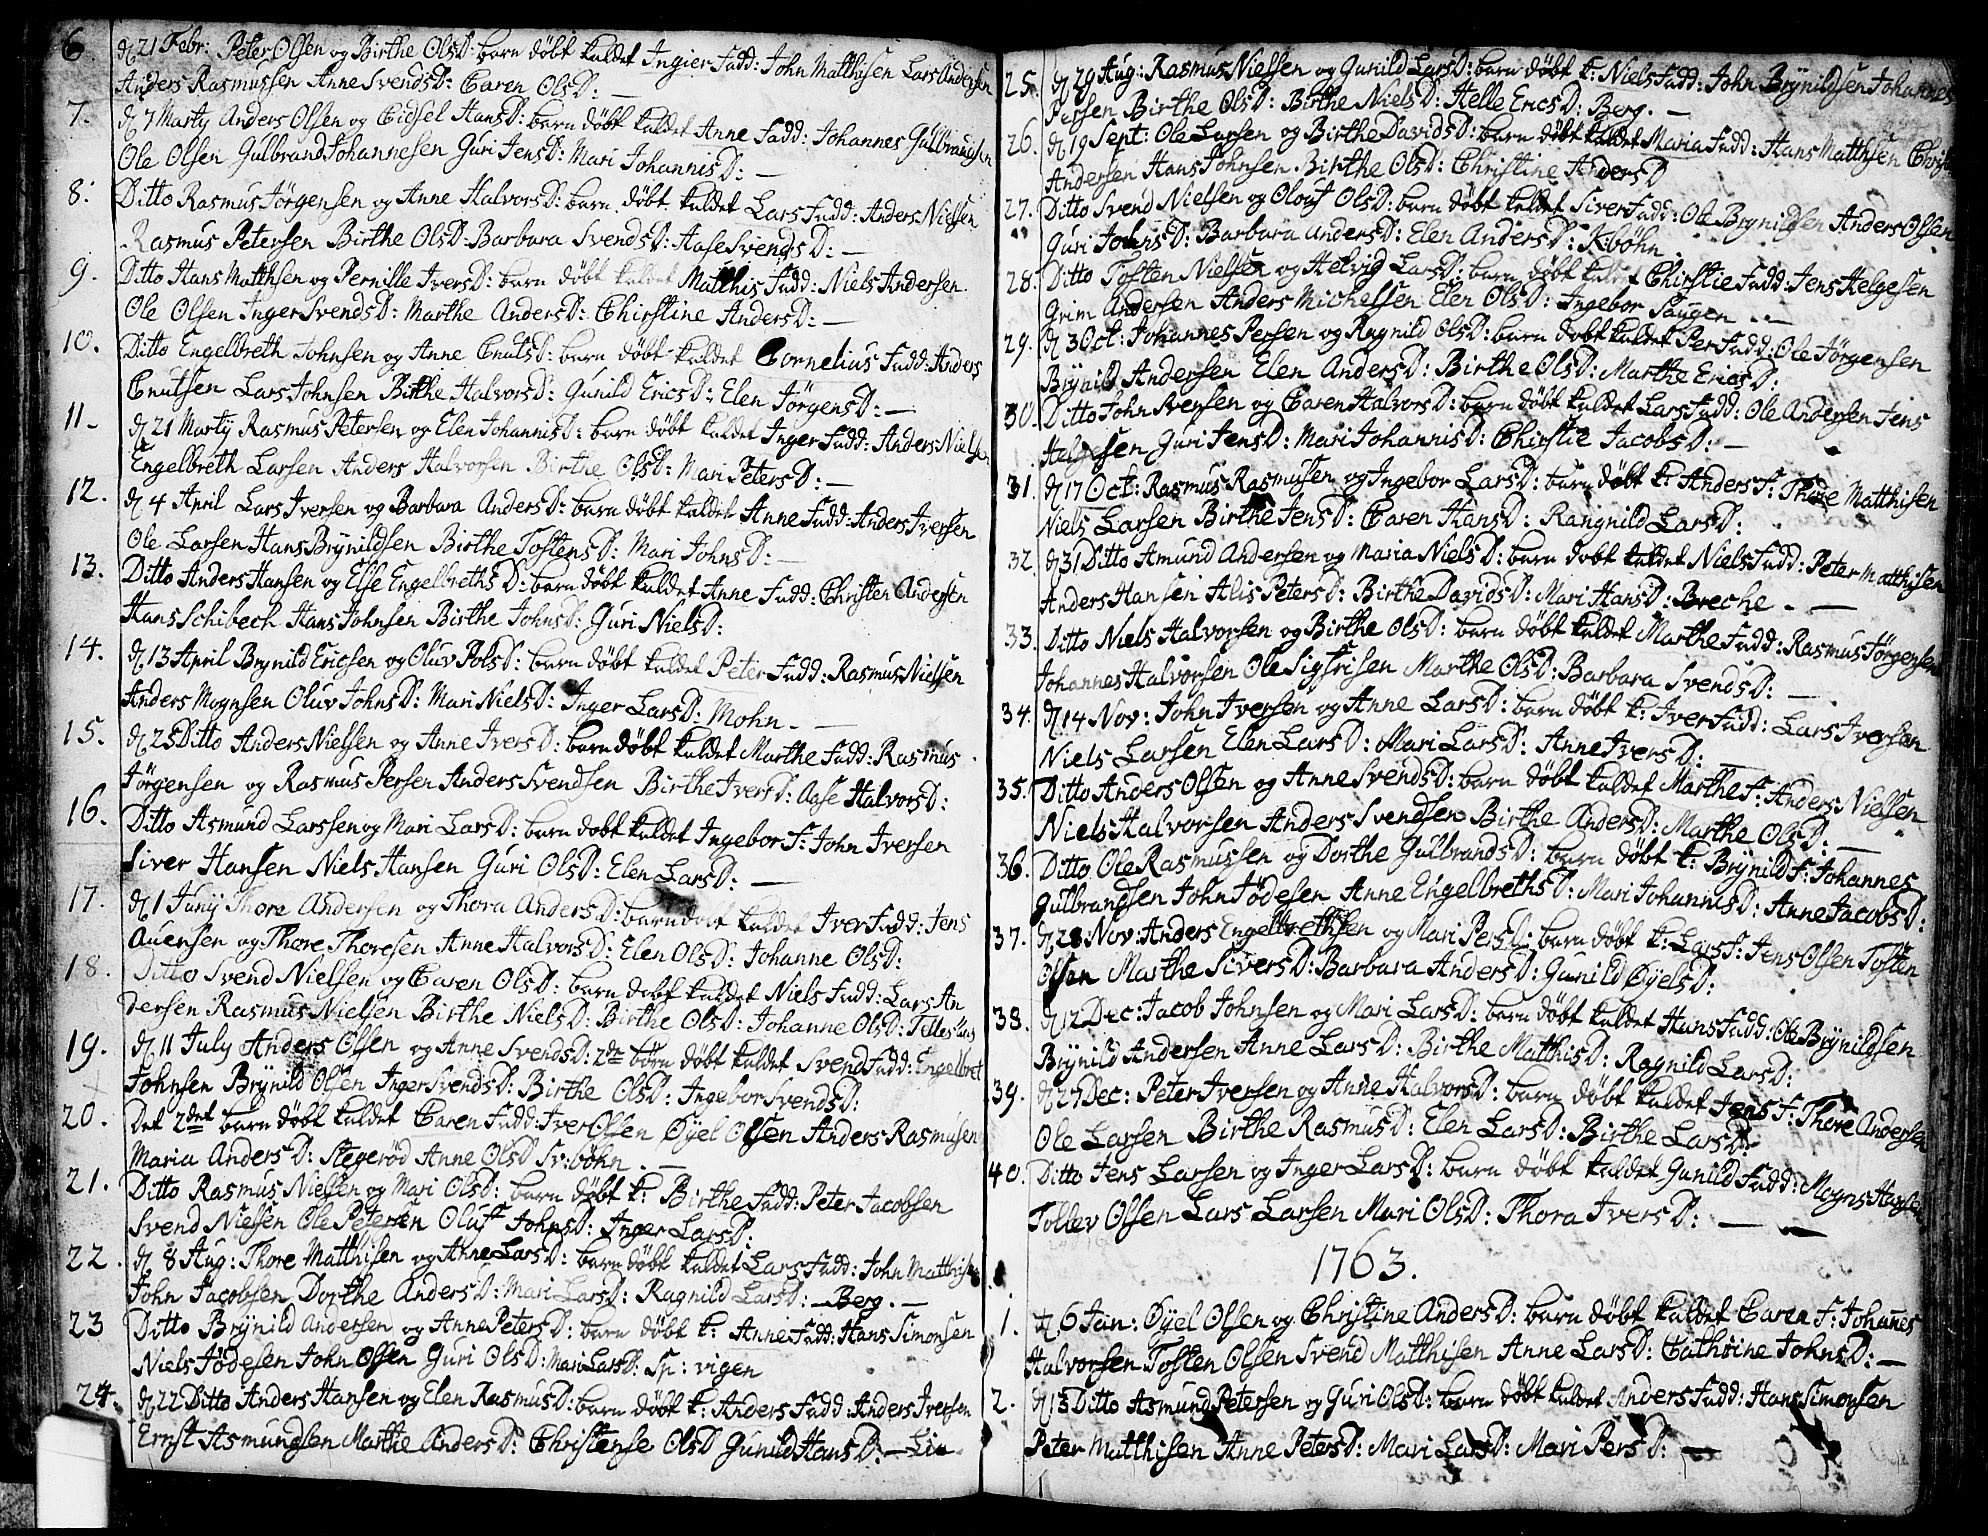 6. d 21 Febr: Peter Olsen og Birthe OlsD: barn döbt kaldet Ingier Fadd: John Matthisen Lars Andersen
Anders Rasmussen Anne SvendsD: Caren OlsD: —
7. d 7 Marty Anders Olsen og Cidsel HansD: barn döbt kaldet Anne Fadd: Johannes Gulbrandsen
Ole Olsen Gulbrand Johannesen Guri JensD: Mari JohannisD: —
8. Ditto Rasmus Jörgensen og Anne HalvorsD: barn döbt kaldet Lars Fadd: Anders Nielsen
Rasmus Petersen Birthe OlsD: Barbara SvendsD: Aase SvendsD: —
9. Ditto Hans Matthsen og Pernille IversD: barn döbt kaldet Matthis Fadd: Niels Andersen
Ole Olsen Inger SvendsD: Marthe AndersD: Chirstine AndersD: —
10. Ditto Engelbreth Johnsen og Anne CnutsD: barn döbt kaldet Cornelius Fadd: Anders
Cnutsen Lars Johnsen Birthe HalvorsD: Gunild EricsD: Elen JörgensD: —
11. d 21 Marty Rasmus Petersen og Elen JohannisD: barn döbt kaldet Inger Fadd: Anders Nielsen
Engelbreth Larsen Anders Halvorsen Birthe OlsD: Mari PetersD: —
12. d 4 April Lars Iversen og Barbara AndersD: barn döbt kaldet Anne Fadd: Anders Iversen
Ole Larsen Hans Brynildsen Birthe TostensD: Mari JohnsD: —
13. Ditto Anders Hansen og Else EngelbrethsD: barn döbt kaldet Anne Fadd: Christen Andersen
Hans Schibech Hans Johnsen Birthe JohnsD: Guri NielsD:
14. d 13 April Brynild Ericsen og Oluv PolsD: barn döbt kaldet Peter Fadd: Rasmus Nielsen
Anders Mognsen Oluv JohnsD: Mari NielsD: Inger LarsD: Mohn —
15. d 25 Ditto Anders Nielsen og Anne IversD: barn döbt kaldet Marthe Fadd: Rasmus
Jörgensen og Rasmus Persen Anders Svendsen Birthe IversD: Aase HalvorsD:
16. Ditto Asmund Larssen og Mari LarsD: barn dobt kaldet Ingebor F: John Iversen
Siver Hansen Niels Hansen Guri OlsD: Elen LarsD: —
17. d 1 Juny Thore Andersen og Thora AndersD: barn dobt kaldet Iver Fadd: Jens
Auensen og Thore Thoresen Anne HalvorsD: Elen OlsD: Johanne OlsD:
18. Ditto Svend Nielsen og Caren OlsD: barn dobt kaldet Niels Fadd: Lars An
dersen Rasmus Nielsen Birthe NielsD: Birthe OlsD: Johanne OlsD:
19. d 11 July Anders Olsen og Anne SvendsD: 2de börn döbt kaldet Svend Fadd: Engelbret
Johnsen Brynild Olsen Inger SvendsD: Birthe OlsD: Ingebor SvendsD:
20. Det 2det barn döbt kaldet Caren Fadd: Iver Olsen Öyel Olsen Anders Rasmusen
Maria AndersD: Stegeröd Anne OlsD Sv: böhn —
21. Ditto Rasmus Nielsen og Mari OlsD: barn döbt k: Birthe Fadd: Peter Jacobsen
Svend Nielsen Ole Petersen Oluf JohnsD: Inger LarsD:
22. d 8 Aug: Thore Matthisen og Anne LarsD: barn döbt kaldet Lars Fadd: John Matthisen
John Jacobsen Dorthe AndersD: Mari LarsD: Ragnild LarsD: Berg. —
23 Ditto Brynild Andersen og Anne PetersD: barn döbt k: Anne Fadd: Hans Simonsen
Niels Jödesen John Olsen Guri OlsD: Mari LarsD: Sp: vigen
24. d 22 Ditto Anders Hansen og Elen RasmusD: barn döbt k: Anders Fadd: Anders Iversen
Ernst Asmundsen Marthe AndersD: Christense OlsD Gunild HansD: — Lie
25. d 29 Aug: Rasmus Nielsen og Gunild LarsD: barn döbt k: Niels Fadd: John Brynildsen Johannes
Persen Birthe OlsD: Birthe NielsD: Helle EricsD: Berg. —
26. d 19 Sept: Ole Larsen og Birthe DavidsD: barn döbt kaldet Maria Fadd: Hans Matthsen
Andersen Hans Johnsen Birthe OlsD: Christine AndersD
27. Ditto Svend Nielsen og Olouf OlsD: barn döbt kaldet Siver Fadd: Ole Brynildsen Anders Olsen
Guri JohnsD: Barbara AndersD: Elen AndersD: K: böhn
28. Ditto Tosten Nielsen og Helvig LarsD: barn döbt kaldet Chirstie Fadd: Jens Helgesen
Grim Andersen Anders Michelsen Elen OlsD: Ingebor Saugen —
29. d 3 Oct: Johannes Persen og Ragnild OlsD: barn dobt kaldet Per Fadd: Ole Jörgensen
Brynild Andersen Elen AndersD: Birthe OlsD: Marthe EricsD:
30. Ditto John Iversen og Caren HalvorsD: barn döbt kaldet Lars Fadd: Ole Andersen Jens
Helgesen Guri JensD: Mari JohannisD: Chirstie JacobsD: —
31. d 17 Oct: Rasmus Rasmusen og Ingebor LarsD: barn döbt k: Anders F: Thore Matthisen
Niels Larsen Birthe JensD: Caren HansD: Rangnild LarsD:
32. d 31 Ditto Amund Andersen og Maria NielsD: barn dobt kaldet Niels Fadd: Peter Matthisen
Anders Hansen Alis PetersD: Birthe DavidsD: Mari HansD: Breche. —
33. Ditto Niels Halvorsen og Birthe OlsD: barn döbt kaldet Marthe Fadd: Rasmus Jörgensen
Johannes Halvorsen Ole Sigfrisen Marthe OlsD: Barbara SvendsD: —
34. d 14 Nov: John Iversen og Anne LarsD: barn döbt k: Iver Fadd: Lars Iversen
Niels Larsen Elen LarsD: Mari LarsD: Anne IversD: —
35. Ditto Anders Olsen og Anne SvendsD: barn döbt kaldet Marthe F: Anders Nielsen
Niels Halvorsen Anders Svendsen Birthe AndersD: Marthe OlsD: —
36. Ditto Ole Rasmussen og Dorthe GulbrandsD: barn döbt k: Brynild F: Johannes
Gulbrandsen John Jödesen Anne EngelbrethsD: Mari JohannisD: Anne JacobsD:
37. d 28 Nov: Anders Engelbrethsen og Mari PersD: barn döbt k: Lars F: Jens Olsen Tosten
Olsen Marthe SiversD: Barbara AndersD: Gunild ÖyelsD:
38. d 12 Dec: Jacob Johnsen og Mari LarsD: barn döbt kaldet Hans Fadd: Ole Brynildsen
Brynild Andersen Anne LarsD: Birthe MatthisD: Ragnild LarsD:
39. d 27 Dec: Peter Iversen og Anne HalvorsD: barn döbt kaldet Jens F: Thore Andersen
Ole Larsen Birthe RasmusD: Elen LarsD: Birthe LarsD:
40. Ditto Jens Larsen og Inger LarsD: barn döbt kaldet Gunild Fadd: Mogns Hansen
Tollev Olsen Lars Larsen Mari OlsD: Thora IversD: —
1763.
1. d 6 Jan: Öyel Olsen og Christine AndersD: barn döbt kaldet Caren F: Johanes
Halvorsen Tosten Olsen Svend Matthisen Anne LarsD: Cathrine JohnsD: —
2. d 13 Ditto Asmund Petersen og Guri OlsD: barn döbt kaldet Anders Fadd: Hans Simonsen
Peter Matthisen Anne PetersD: Mari LarsD: Mari PersD: —